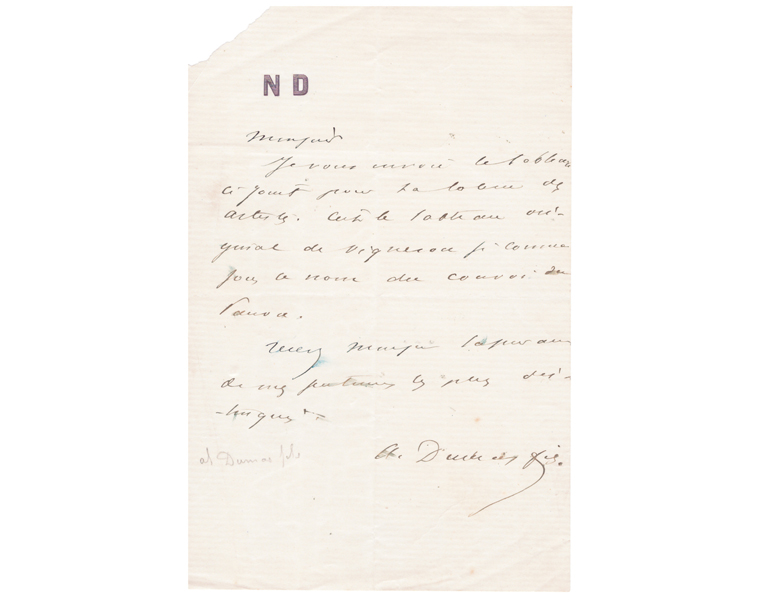 N D
Monsieur
Je vous envoie le tableau
ci-joint pour la loterie des
artistes. C'est le tableau ori-
ginal de Vigneron si connu
sous le nom du convoi du
Pauvre.
Recevez Monsieur l'assurance
de mes sentiments les plus dis-
-tingués
A. Dumas fils.
al Dumas fils